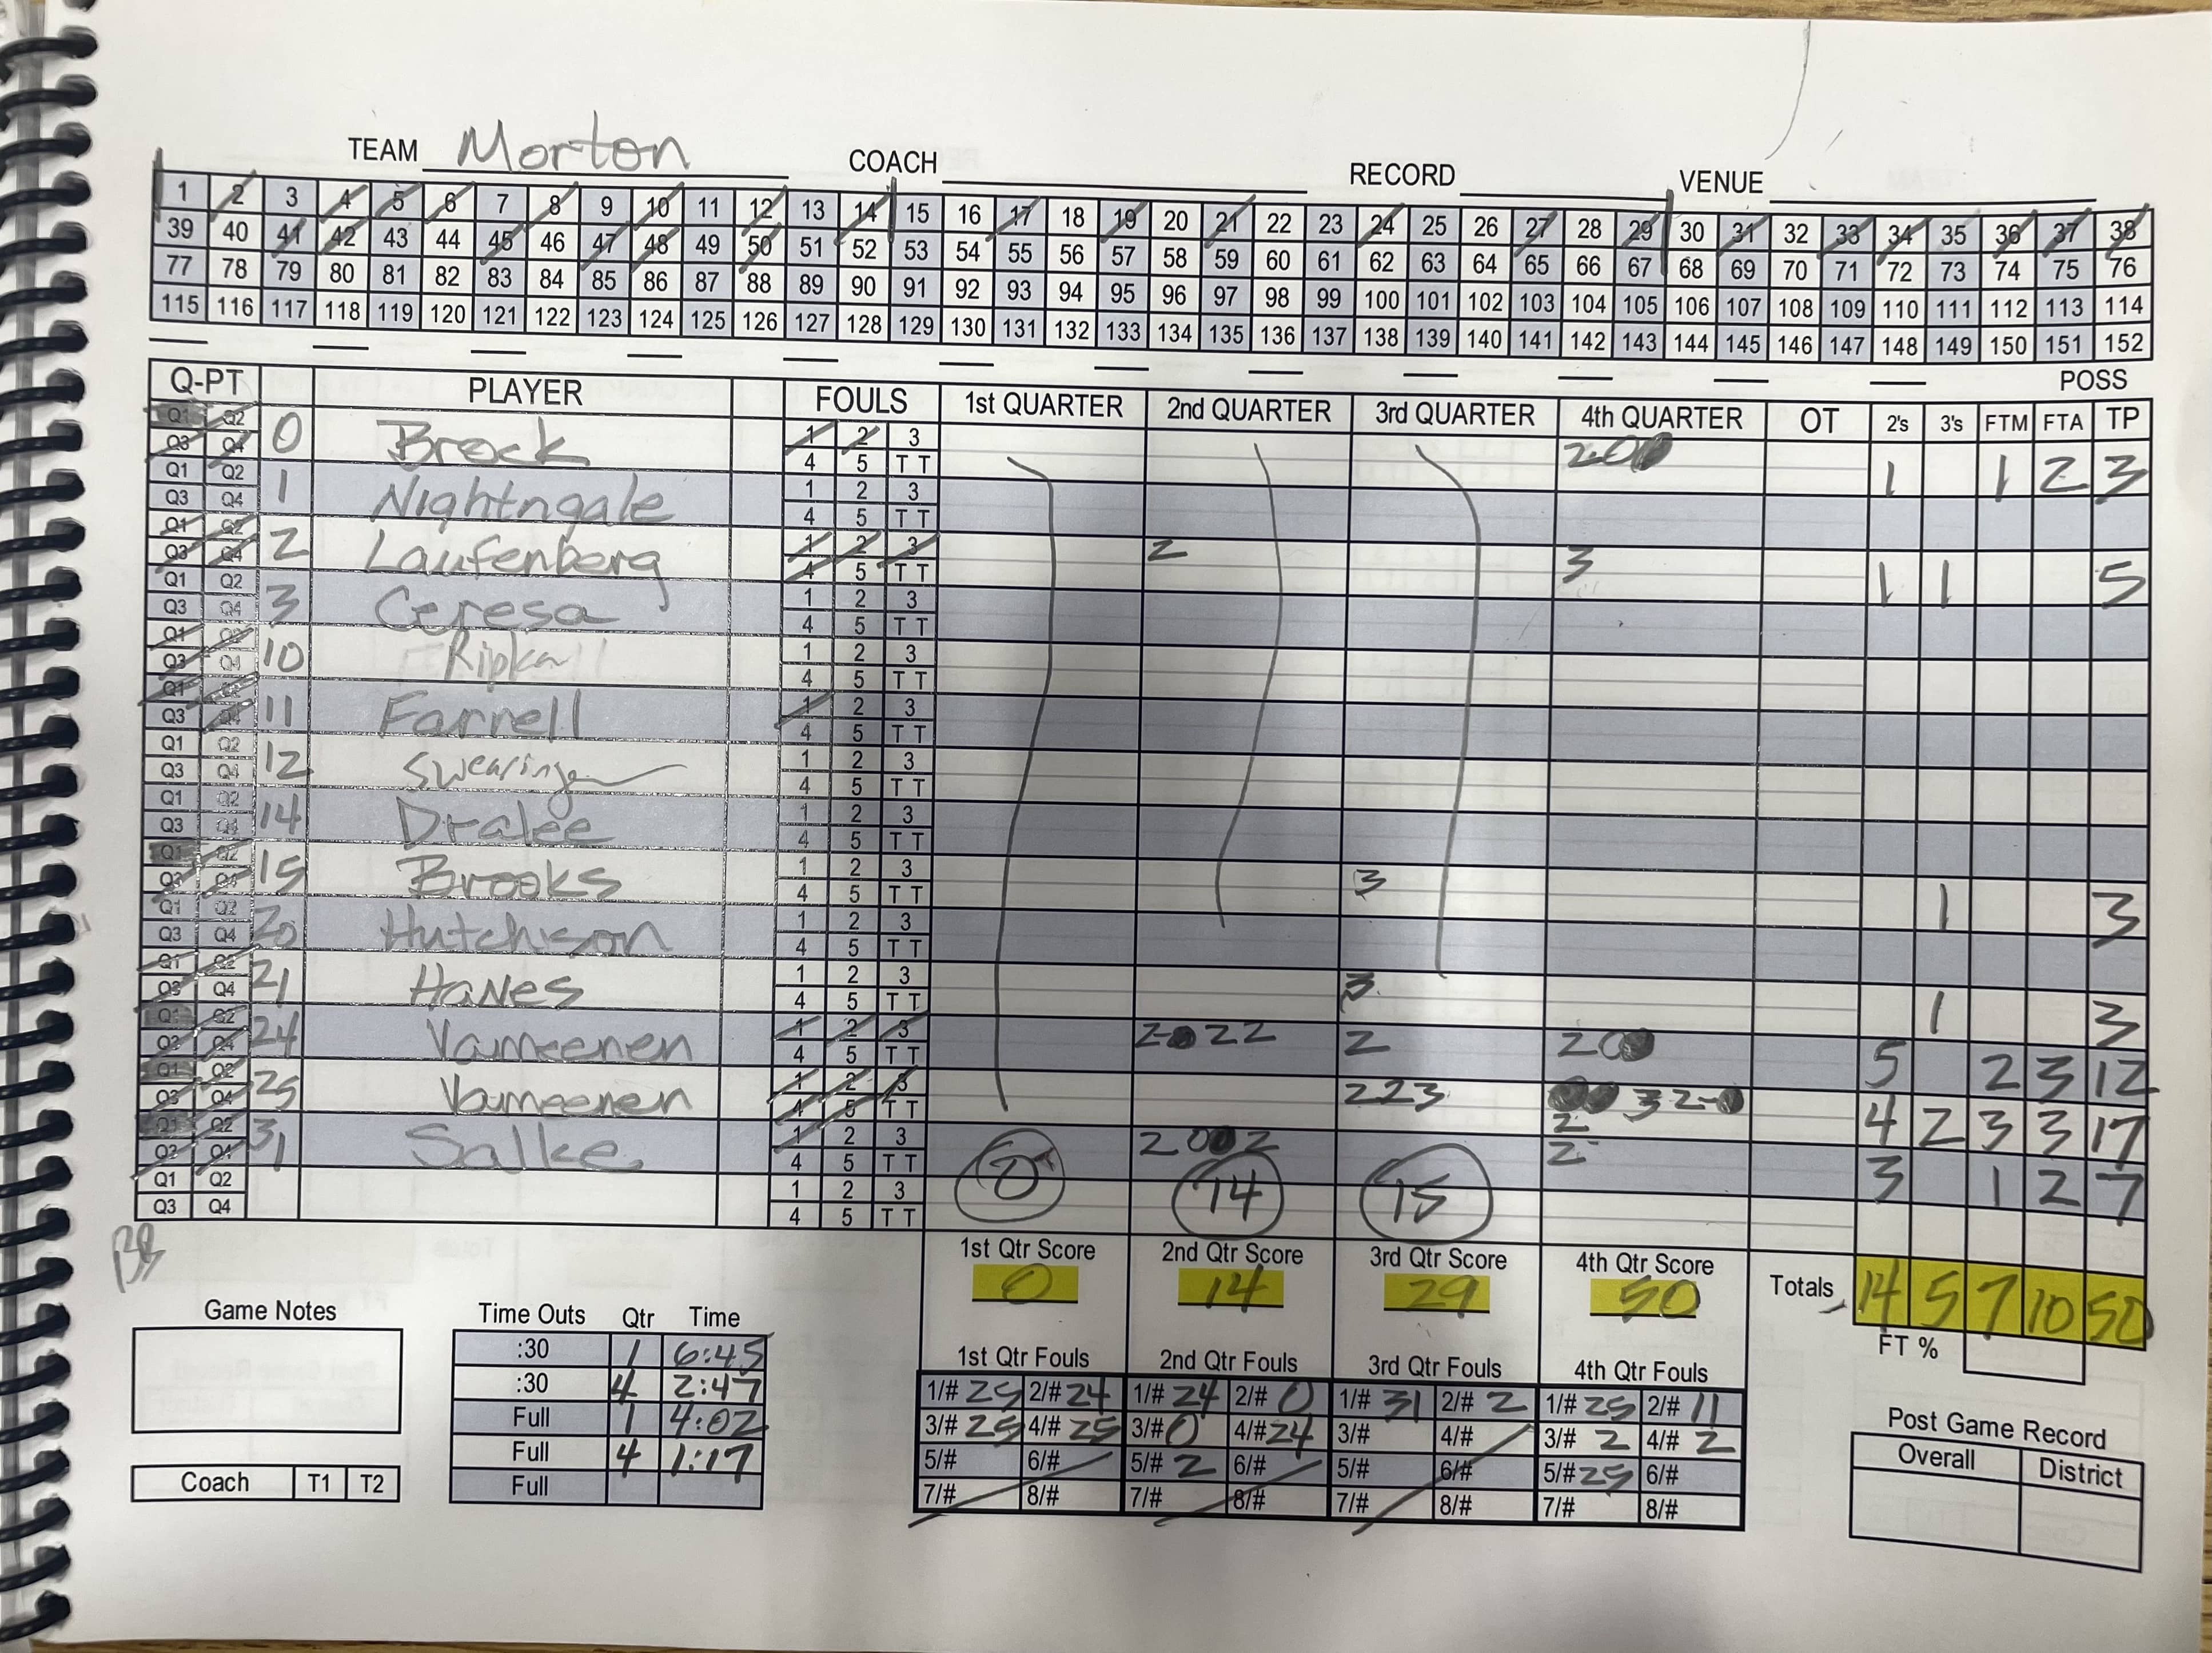 TEAM Morton COACH RECORD VENUE
1 2 3 4 5 6 7 8 9 10 11 12 13 14 15 16 17 18 19 20 21 22 23 24 25 26 27 28 29 30 31 32 33 34 35 36 37 38
39 40 41 42 43 44 45 46 47 48 49 50 51 52 53 54 55 56 57 58 59 60 61 62 63 64 65 66 67 68 69 70 71 72 73 74 75 76
77 78 79 80 81 82 83 84 85 86 87 88 89 90 91 92 93 94 95 96 97 98 99 100 101 102 103 104 105 106 107 108 109 110 111 112 113 114
115 116 117 118 119 120 121 122 123 124 125 126 127 128 129 130 131 132 133 134 135 136 137 138 139 140 141 142 143 144 145 146 147 148 149 150 151 152
POSS
Q-PT PLAYER FOULS 1st QUARTER 2nd QUARTER 3rd QUARTER 4th QUARTER OT 2's 3's FTM FTA TP
Q1 Q2 1 2 3
Q3 Q4 0 Brock 4 5 T T 2 0 1 1 2 3
Q1 Q2 1 2 3
Q3 Q4 1 Nightngale 4 5 T T
Q1 Q2 1 2 3
Q3 Q4 2 Laufenberg 4 5 T T 2 3 1 1 5
Q1 Q2 1 2 3
Q3 Q4 3 Ceresa 4 5 T T
Q1 Q2 1 2 3
Q3 Q4 10 Ripka 4 5 T T
Q1 Q2 1 2 3
Q3 Q4 11 Farrell 4 5 T T
Q1 Q2 1 2 3
Q3 Q4 12 Swearingen 4 5 T T
Q1 Q2 1 2 3
Q3 Q4 14 Dralee 4 5 T T
Q1 Q2 1 2 3
Q3 Q4 15 Brooks 4 5 T T 3 1 3
Q1 Q2 1 2 3
Q3 Q4 20 Hutchison 4 5 T T
Q1 Q2 1 2 3
Q3 Q4 21 Hanes 4 5 T T 3 1 3
Q1 Q2 1 2 3
Q3 Q4 24 Vameenen 4 5 T T 2 22 2 20 5 2 3 12
Q1 Q2 1 2 3
Q3 Q4 25 Vameenen 4 5 T T 223 3 2 2 4 2 3 3 17
Q1 Q2 1 2 3
Q3 Q4 31 Salke 4 5 T T 20 2 2 3 1 2 7
Q1 Q2 1 2 3
Q3 Q4 4 5 T T
0 14 15
1st Qtr Score 2nd Qtr Score 3rd Qtr Score 4th Qtr Score
0 14 29 50
Totals 14 5 7 10 50
FT %
Game Notes
Time Outs Qtr Time
:30 1 6:45
:30 4 2:47
Full 1 4:02
Full 4 1:17
Full
Coach T1 T2
1st Qtr Fouls 2nd Qtr Fouls 3rd Qtr Fouls 4th Qtr Fouls
1/# 25 2/# 24 1/# 24 2/# 0 1/# 31 2/# 2 1/# 25 2/# 11
3/# 25 4/# 25 3/# 0 4/# 24 3/# 4/# 3/# 2 4/# 2
5/# 6/# 5/# 2 6/# 5/# 6/# 5/# 25 6/#
7/# 8/# 7/# 8/# 7/# 8/# 7/# 8/#
Post Game Record
Overall District